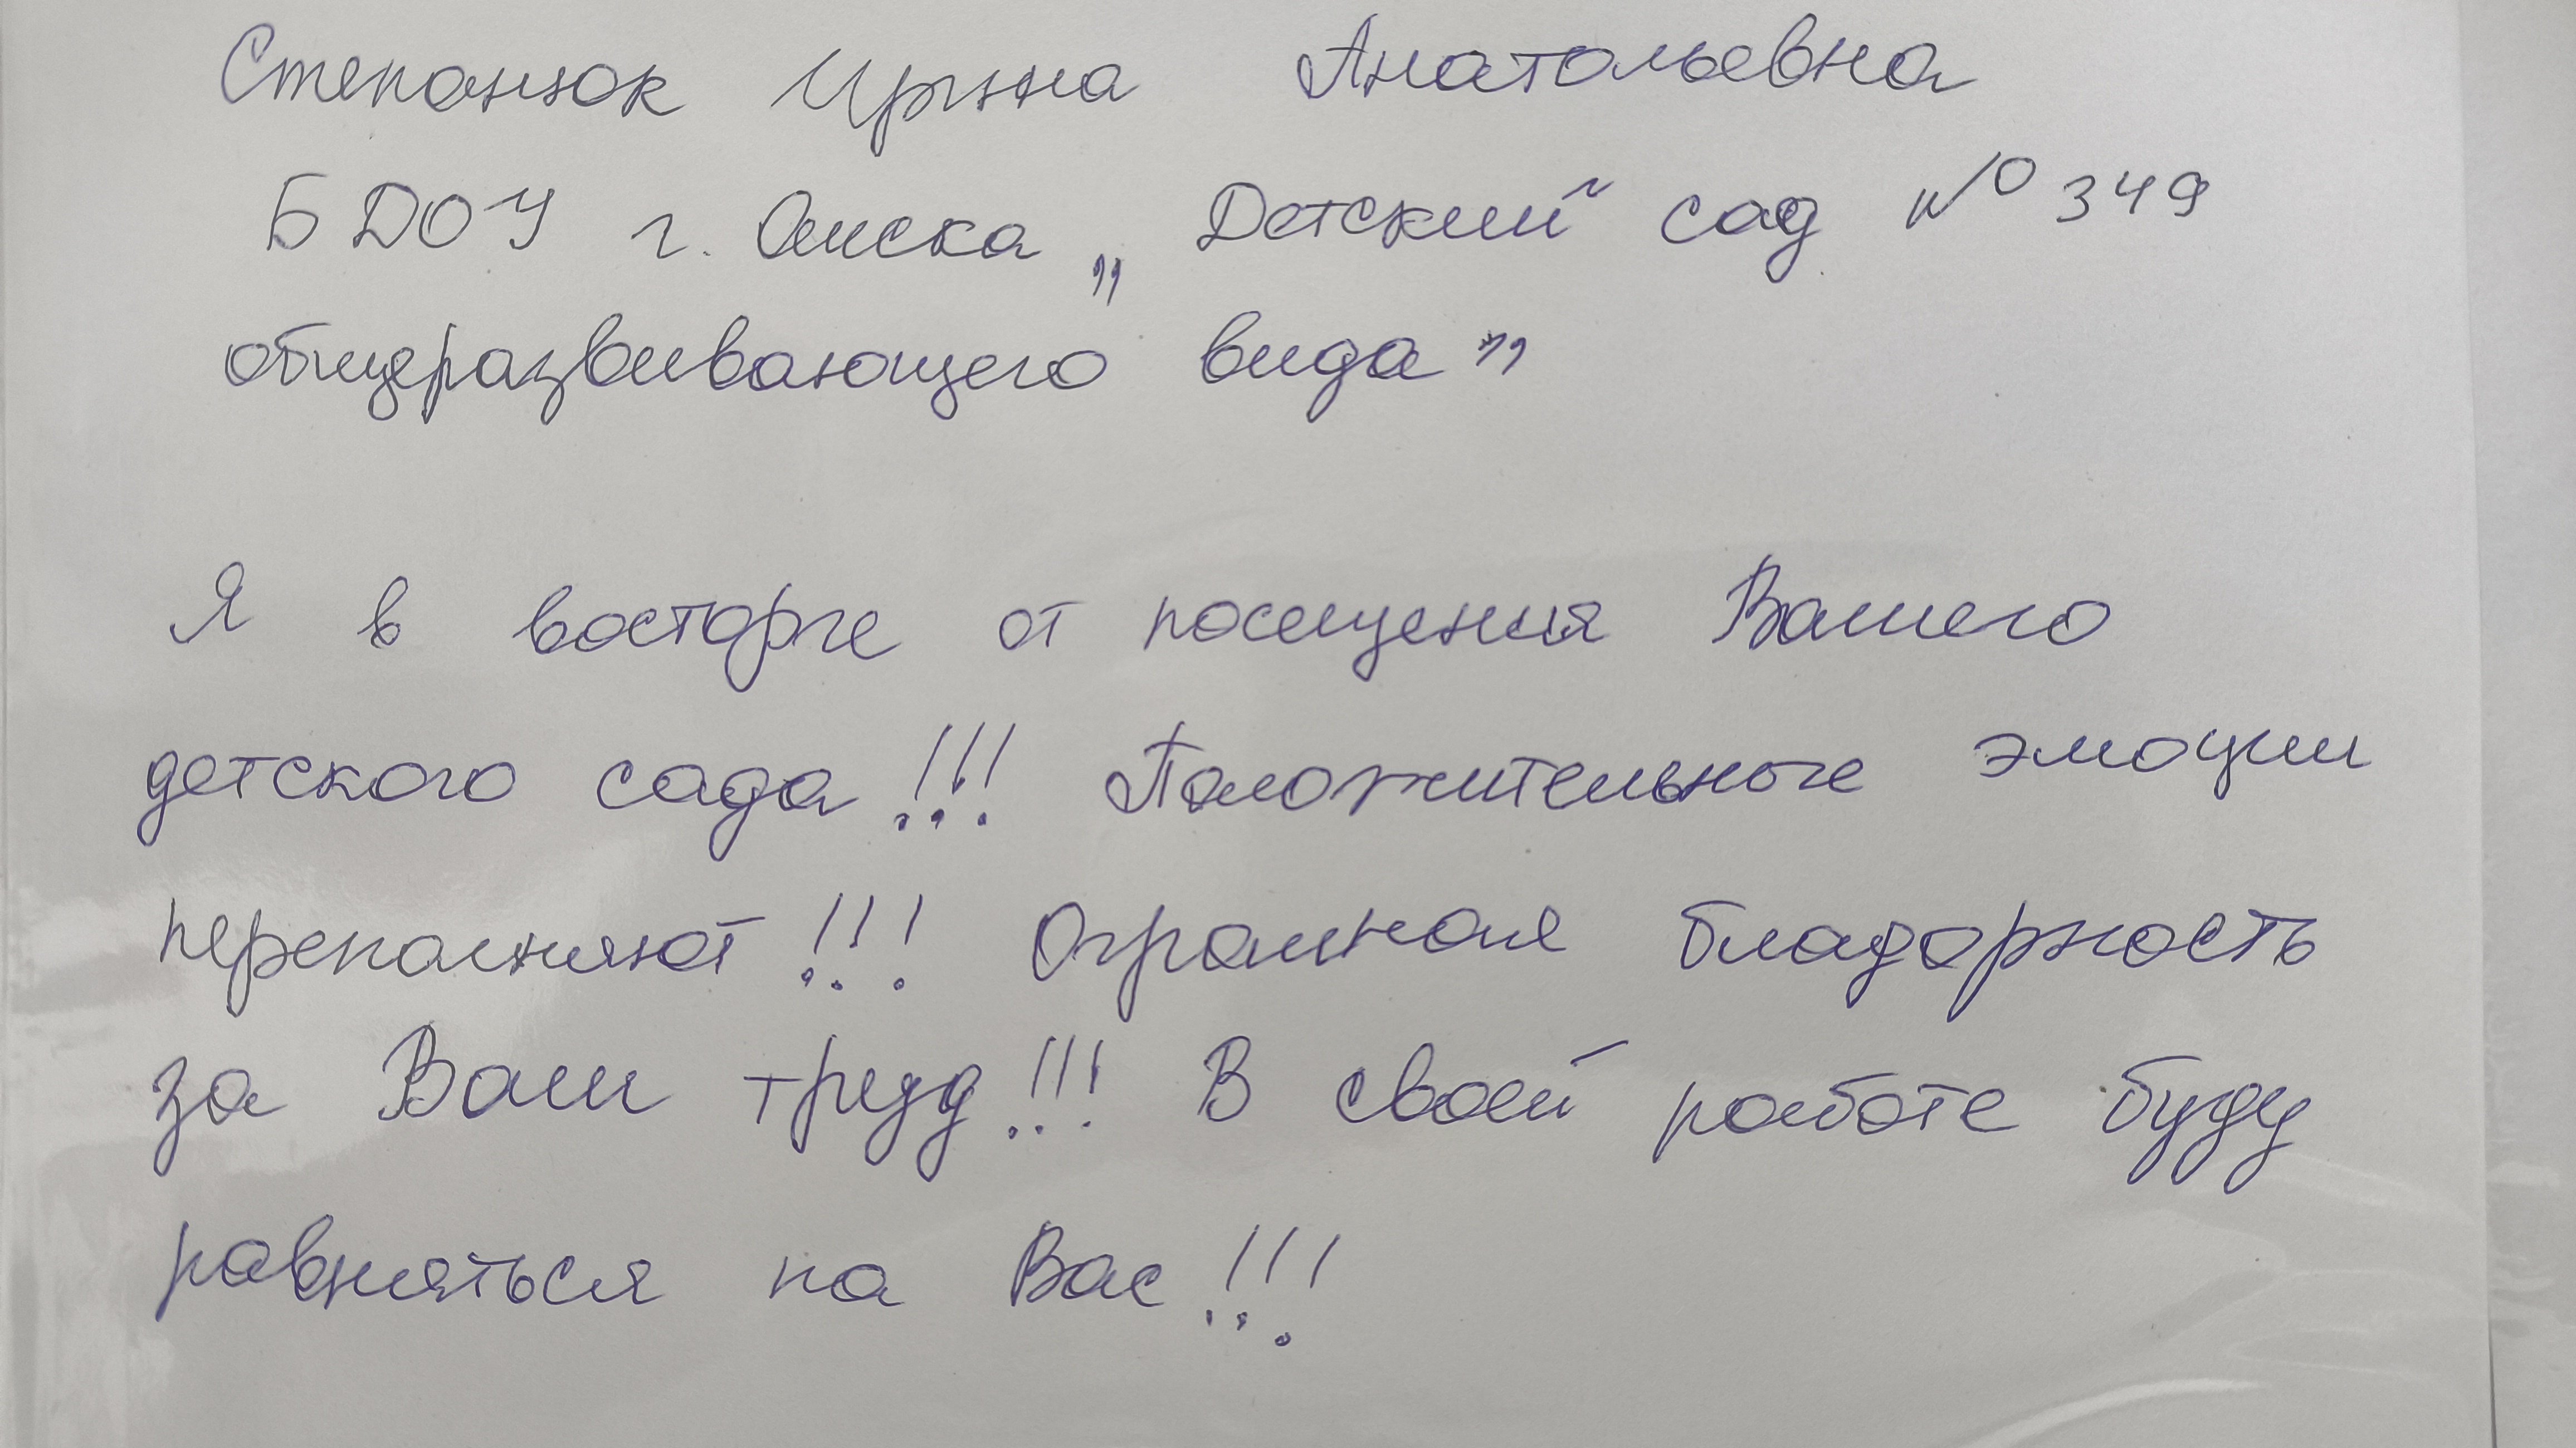 Степанюк Ирина Анатольевна
БДОУ г. Омска „ Детский сад № 349
общеразвивающего вида"
Я в восторге от посещения Вашего
детского сада!!! Положительные эмоции
переполняют!!! Огромная бладорность
за Ваш труд!!! В своей работе буду
равняться на Вас!!!